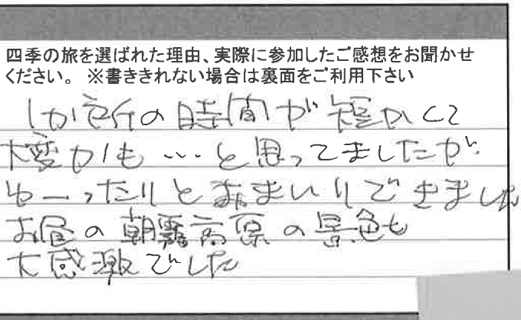 四季の旅を選ばれた理由、実際に参加したご感想をお聞かせ
ください。 ※書ききれない場合は裏面をご利用下さい
1か所の時間が短かくて
大変かも…と思ってましたが
ゆーったりとおまいりできました
お昼の朝霧高原の景色も
大感激でした